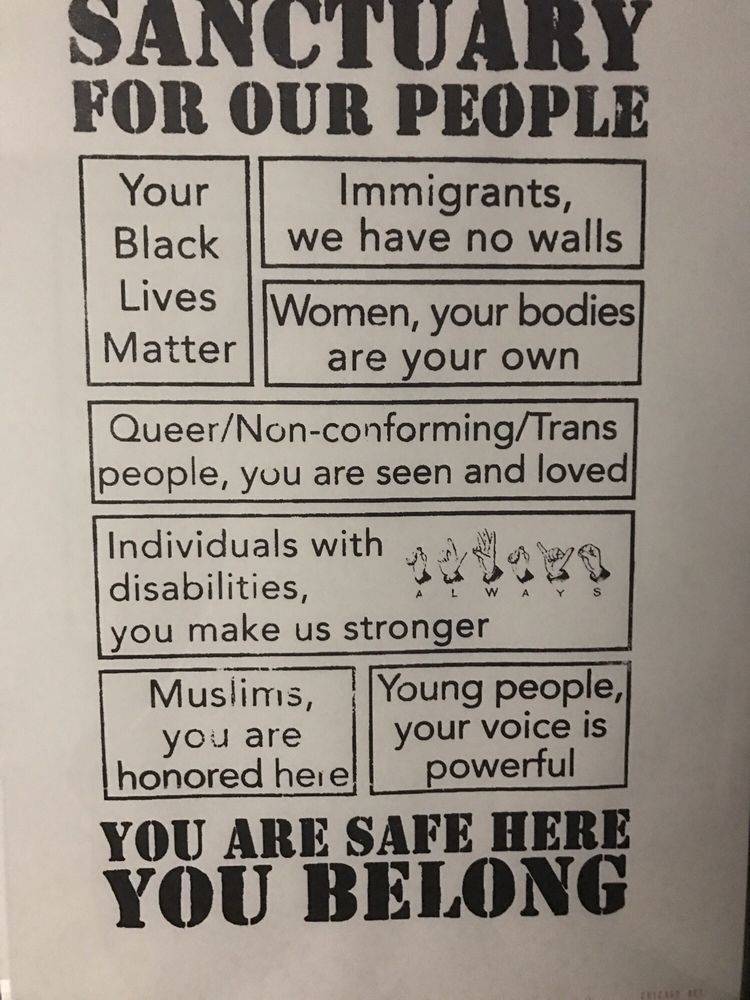 SANCTUARY
FOR OUR PEOPLE
Your
Black
Lives
Matter
Immigrants,
we have no walls
Women, your bodies
are your own
Queer/Non-conforming/Trans
people, you are seen and loved
Individuals with
disabilities,
you make us stronger
A L W A Y S
Muslims,
you are
honored here
Young people,
your voice is
powerful
YOU ARE SAFE HERE
YOU BELONG